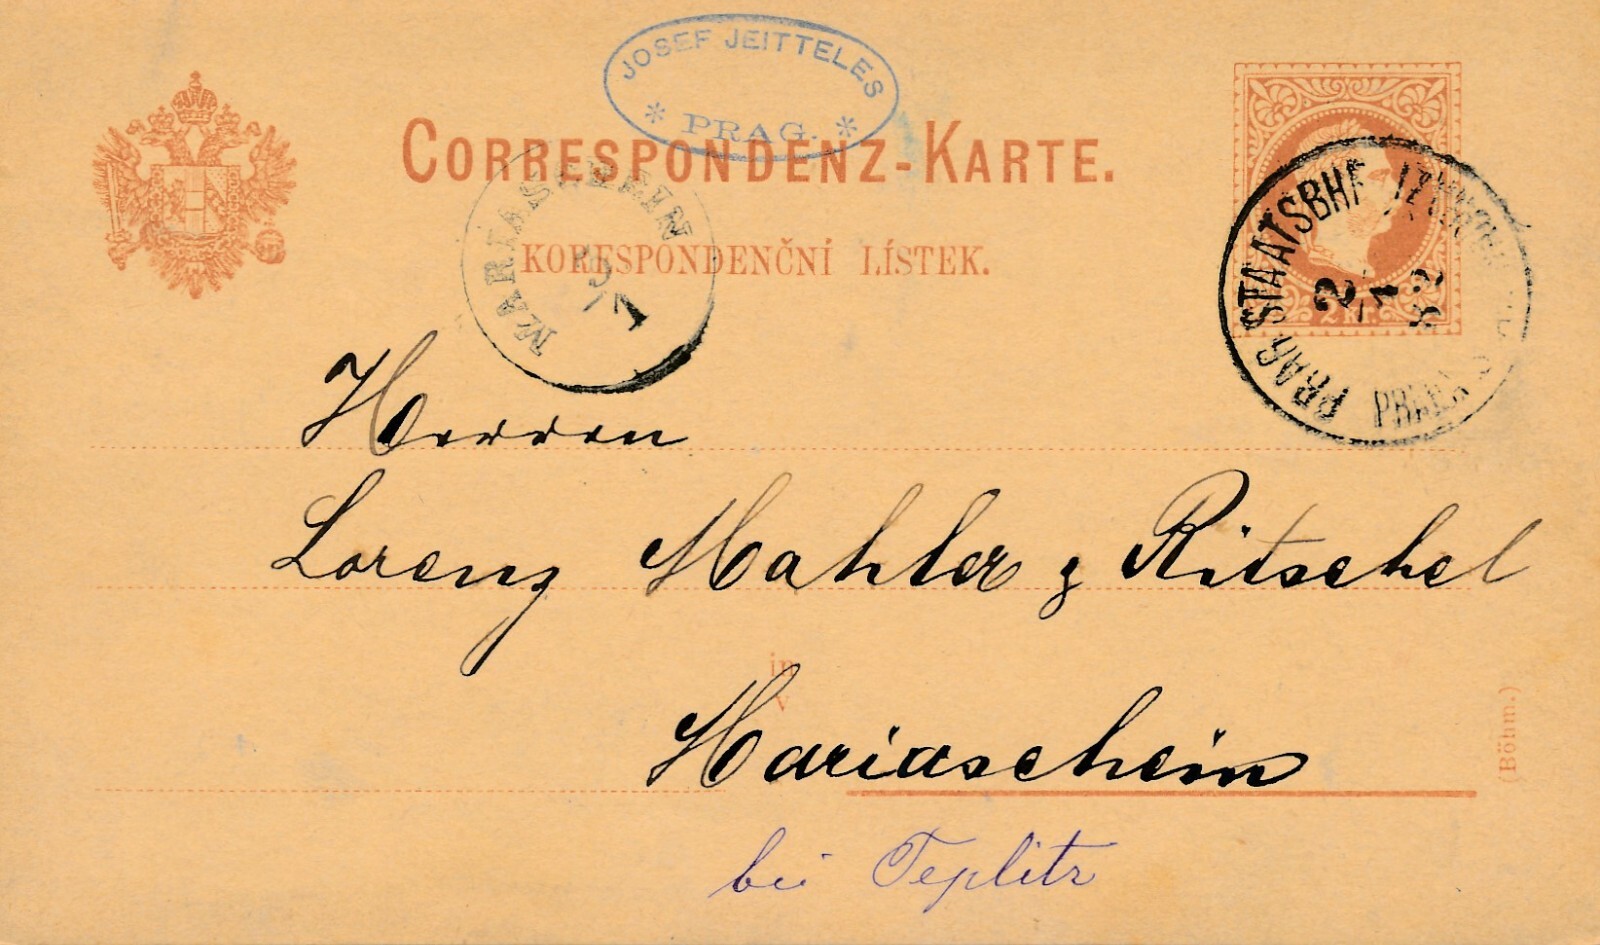 JOSEF JEITTELES
* PRAG. *
CORRESPONDENZ-KARTE.
KORESPONDENČNÍ LÍSTEK.
MARIASCHEIN
3/1
2 KR.
PRAG-STAATSBHF
2/1
82
PRAHA
Herren
Lorenz Mahler & Ritschel
in
v
Mariaschein
bei Teplitz
(Böhm.)